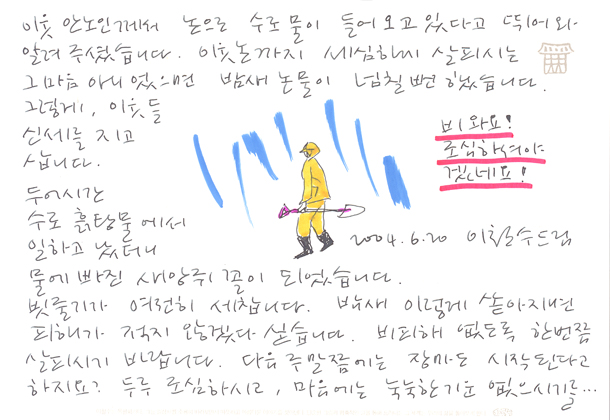 이웃 안노인께서 논으로 수로 물이 들어오고 있다고 뛰어와
알려 주셨습니다. 이웃 논까지 세심하게 살피시는
그 마음 아니었으면 밤새 논물이 넘칠 뻔 했습니다.
그렇게, 이웃들
신세를 지고
삽니다.
비와요!
조심하셔야
겠네요!
두어시간
수로 흙탕물에서
일하고 났더니
2004.6.20 이철수드림
물에 빠진 새앙쥐 꼴이 되었습니다.
빗줄기가 여전히 세찹니다. 밤새 이렇게 쏟아지면
피해가 적지 않겠다 싶습니다. 비피해 없도록 한번쯤
살피시기 바랍니다. 다음 주말쯤에는 장마도 시작된다고
하지요? 두루 조심하시고, 마음에는 눅눅한 기운 없으시기를...